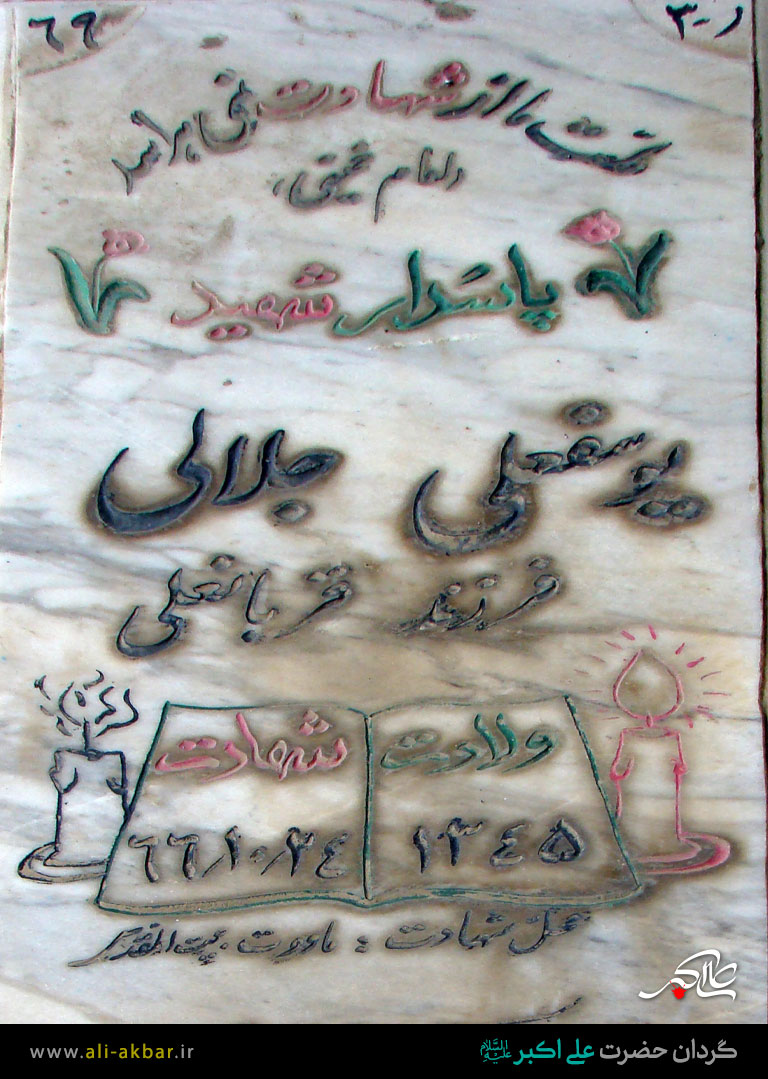 ر-۳ ۶۹
ملت ما از شهادت نمی هراسد
«امام خمینی»
پاسدار شهید
یوسفعلی جلالی
فرزند قربانعلی
ولادت شهادت
۱۳۴۵ ۶۶٫۱۰٫۲۴
محل شهادت : ماووت . بیت المقدس
علی اکبر
www.ali-akbar.ir گردان حضرت علی اکبر علیه السلام